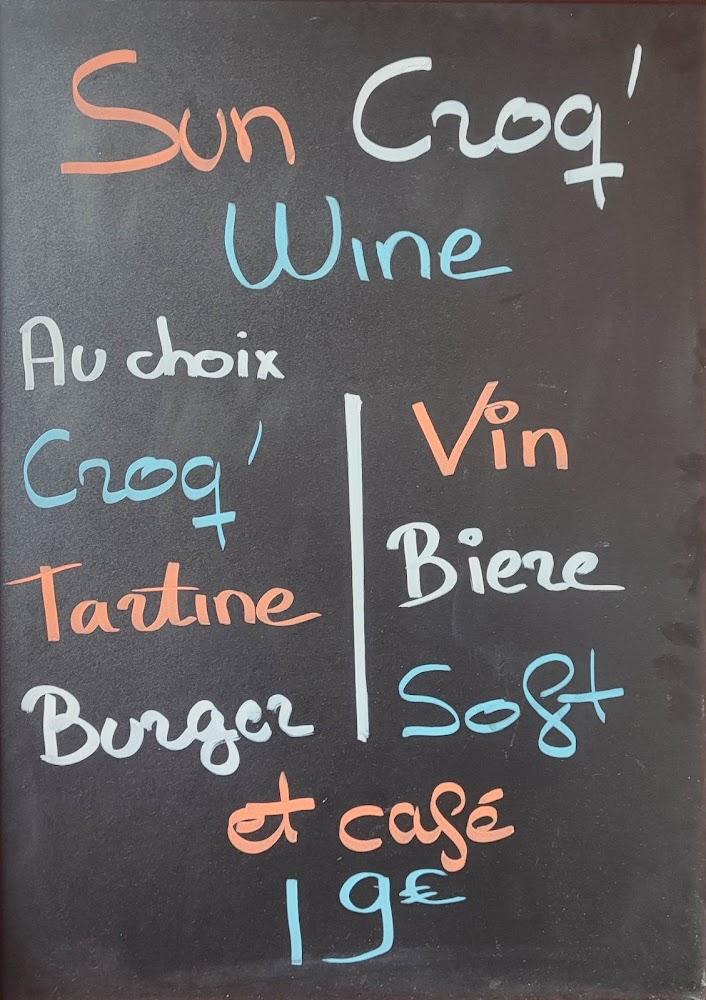 Sun Croq'
Wine
Au choix
Croq'
Tartine
Burger
Vin
Biere
Soft
et café
19€